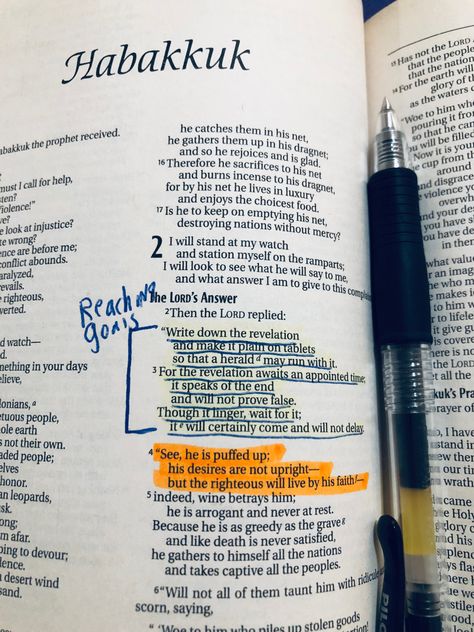 Habakkuk
abakkuk the prophet received.
must I call for help,
sten?
Violence!"
look at injustice?
te wrong?
ence are before me;
conflict abounds.
aralyzed,
evails.
righteous,
verted.
d watch—
mething in your days
elieve,
lonians,ᵃ
etuous people,
ole earth
s not their own.
aded people;
elves
honor.
an leopards,
usk.
ong;
oping to devour;
dence.
desert wind
sand.
he catches them in his net,
he gathers them up in his dragnet;
and so he rejoices and is glad.
16 Therefore he sacrifices to his net
and burns incense to his dragnet,
for by his net he lives in luxury
and enjoys the choicest food.
17 Is he to keep on emptying his net,
destroying nations without mercy?
2 I will stand at my watch
and station myself on the ramparts;
I will look to see what he will say to me,
and what answer I am to give to this complaint
Reaching
goals
The LORD's Answer
2 Then the LORD replied:
"Write down the revelation
and make it plain on tablets
so that a herald ᵈ may run with it.
3 For the revelation awaits an appointed time;
it speaks of the end
and will not prove false.
Though it linger, wait for it;
it ᵉ will certainly come and will not delay.
4 "See, he is puffed up;
his desires are not upright—
but the righteous will live by his faith ᶠ—
5 indeed, wine betrays him;
he is arrogant and never at rest.
Because he is as greedy as the grave ᵍ
and like death is never satisfied,
he gathers to himself all the nations
and takes captive all the peoples.
6 "Will not all of them taunt him with ridicule
scorn, saying,
" 'Woe to him who piles up stolen goods
13 Has not the LORD A
that the people
that the nation
14 For the earth will
glory of th
as the waters c
"Woe to him w
pouring it from
so that he can
You will be filled
Now it is your
cup from
and disgrace
violence you
overwh
and your
PILOT